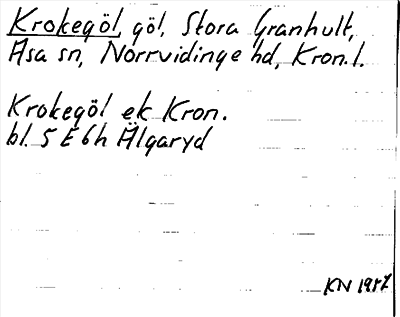 Krokegöl, göl, Stora Granhult,
Asa sn, Norrvidinge hd, Kron.l.
Krokegöl ek Kron.
bl. 5 E 6h Älgaryd
KN 1987